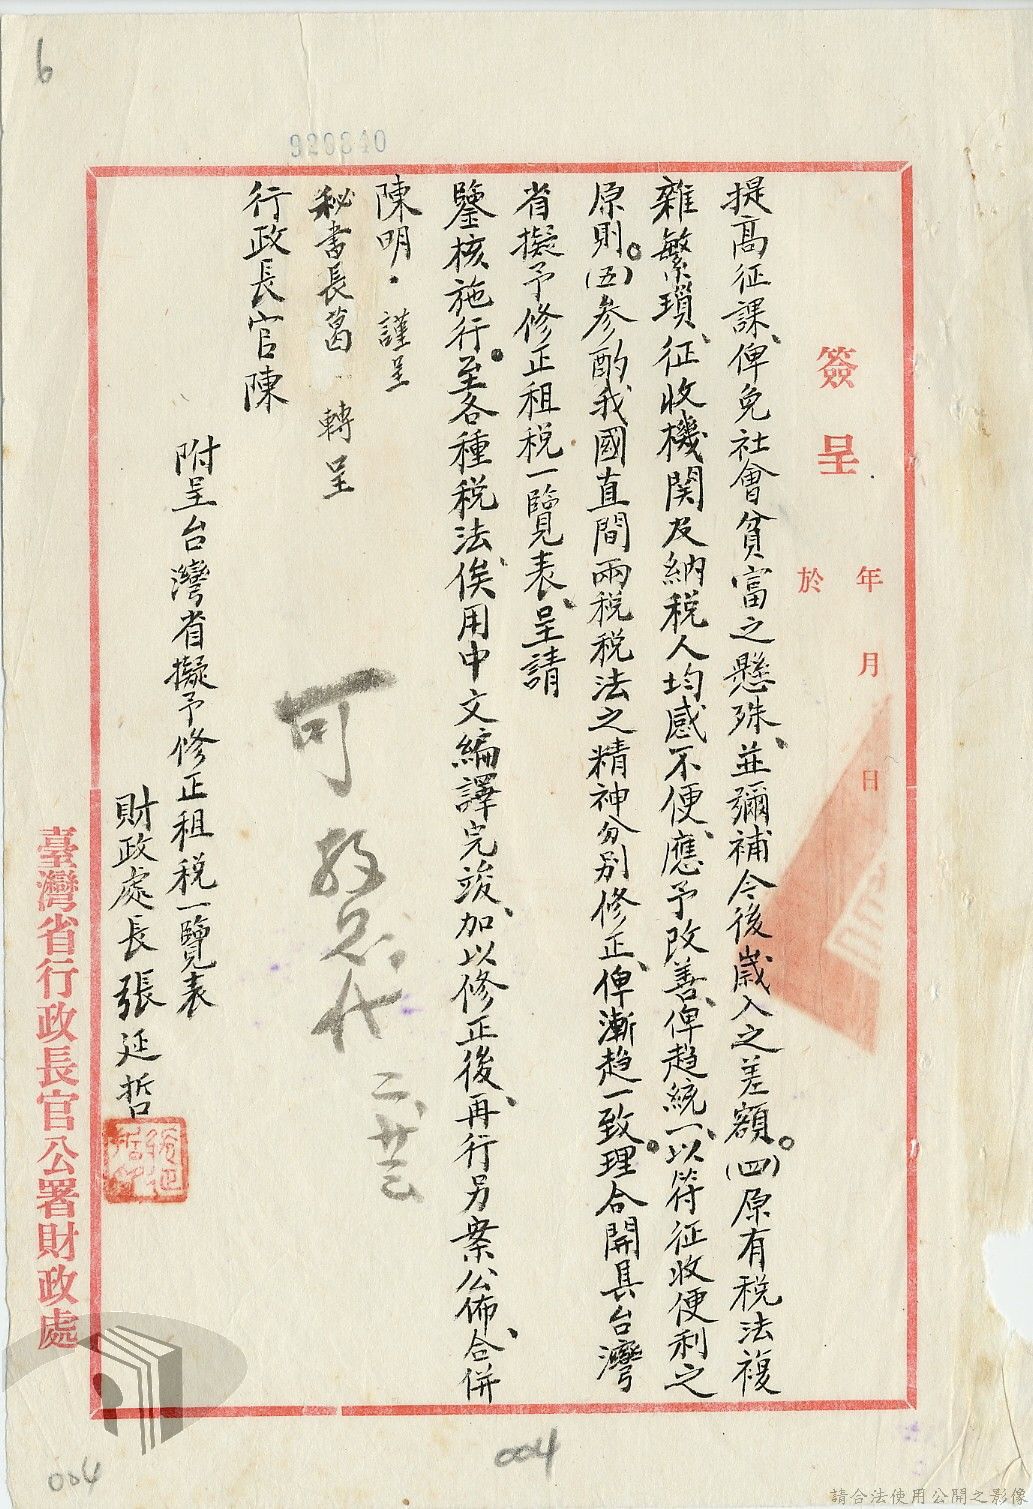 6
920840
簽呈
年 月 日
於
提高征課、俾免社會貧富之懸殊、並彌補今後歲入之差額。(四)原有税法複
雜繁瑣、征收機関及納税人均感不便、應予改善、俾趨統一、以符征收便利之
原則。(五)參酌我國直間兩税税法之精神分別修正、俾漸趨一致。理合開具台灣
省擬予修正租税一覽表、呈請
鑒核施行。至各種税法、俟用中文編譯完竣、加以修正後、再行另案公佈、合併
陳明。謹呈
秘書長葛 轉呈
行政長官陳
附呈台灣省擬予修正租税一覽表
財政處長張延哲
可
二、廿三
臺灣省行政長官公署財政處
004
004
請合法使用公開之影像